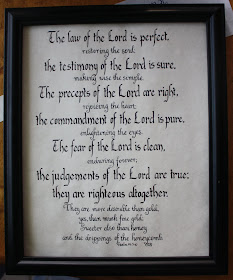 The law of the Lord is perfect,
restoring the soul.
the testimony of the Lord is sure,
making wise the simple.
The precepts of the Lord are right,
rejoicing the heart;
the commandment of the Lord is pure,
enlightening the eyes.
The fear of the Lord is clean,
enduring forever;
the judgements of the Lord are true;
they are righteous altogether.
They are more desirable than gold,
yes, than much fine gold;
Sweeter also than honey
and the drippings of the honeycomb.